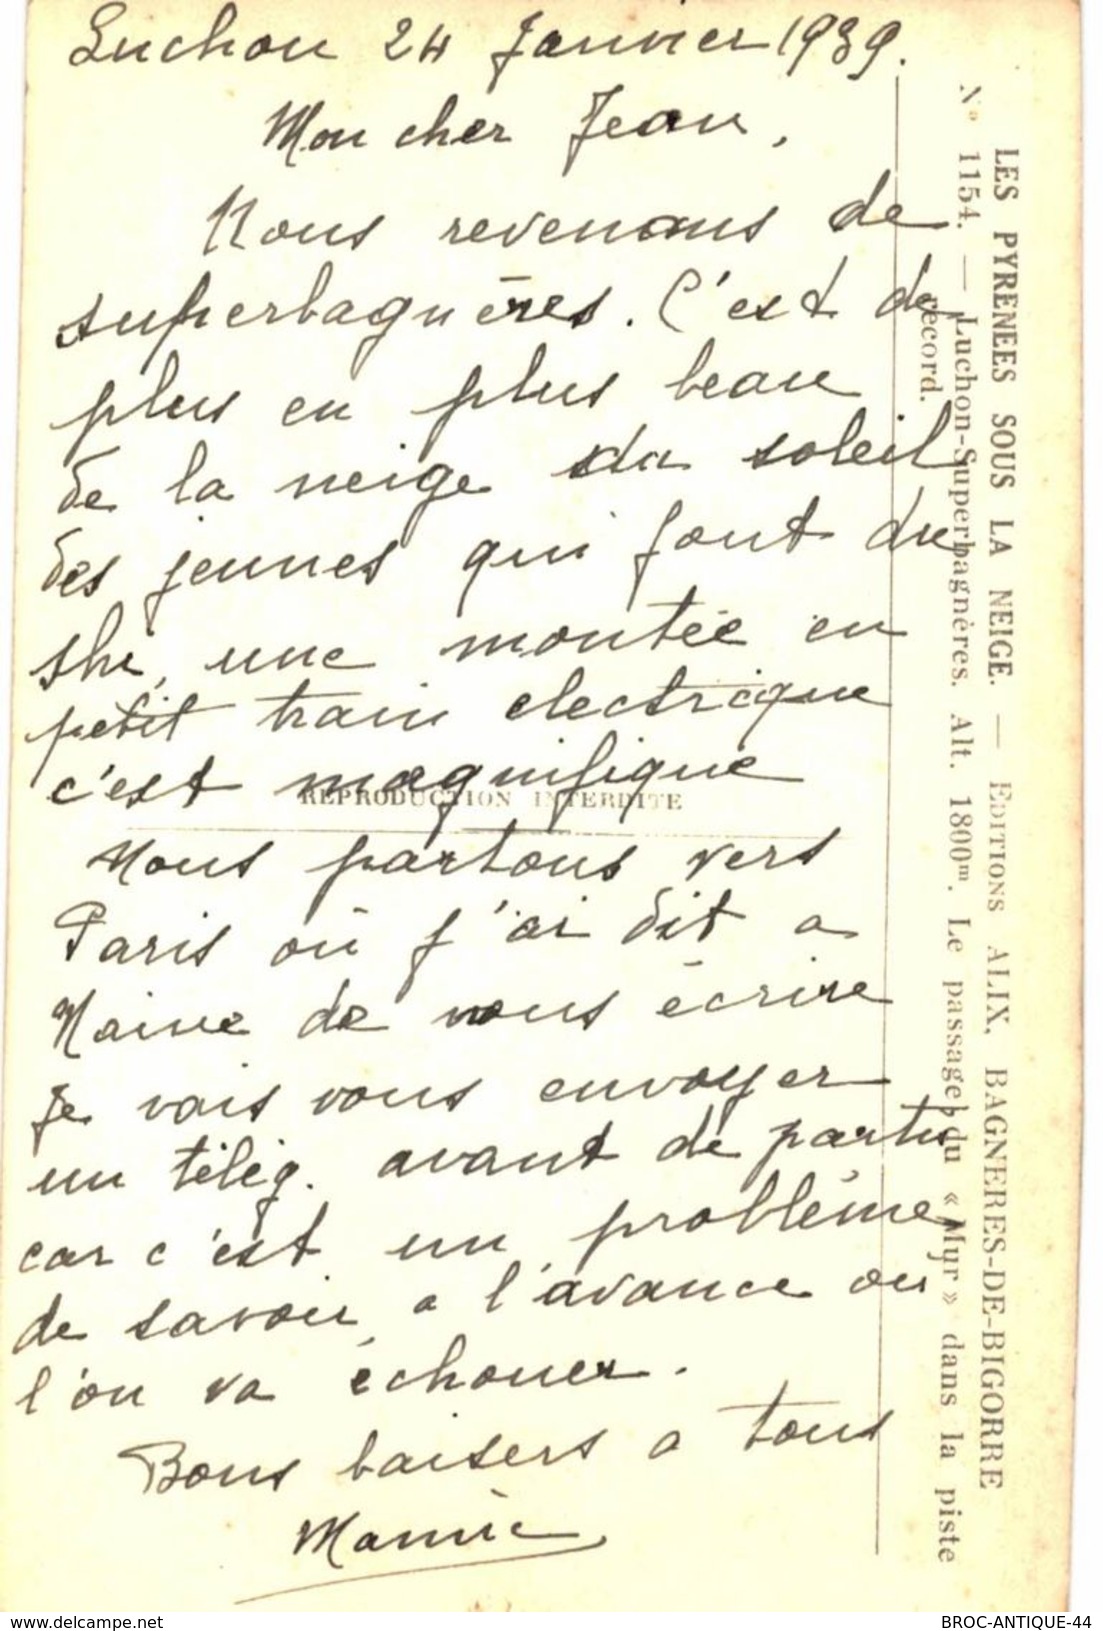 Luchon 24 Janvier 1939.
Mon cher Jean,
Nous revenons de
superbagnères. C'est de
plus en plus beau
de la neige du soleil
des jeunes qui font du
ski, une montée en
petit train electrique
c'est magnifique
Nous partons vers
Paris où j'ai dit a
de vous écrire
Je vais vous envoyer
un télég. avant de partir
car c'est un problème
de savoir a l'avance ou
l'on va échouer.
Bons baisers a tous
Mamie
REPRODUCTION INTERDITE
LES PYRENEES SOUS LA NEIGE. — EDITIONS ALIX, BAGNERES-DE-BIGORRE
Nº 1154. — Luchon-Superbagnères. Alt. 1800m. Le passage du « Myr » dans la piste
record.
www.delcampe.net
BROC-ANTIQUE-44